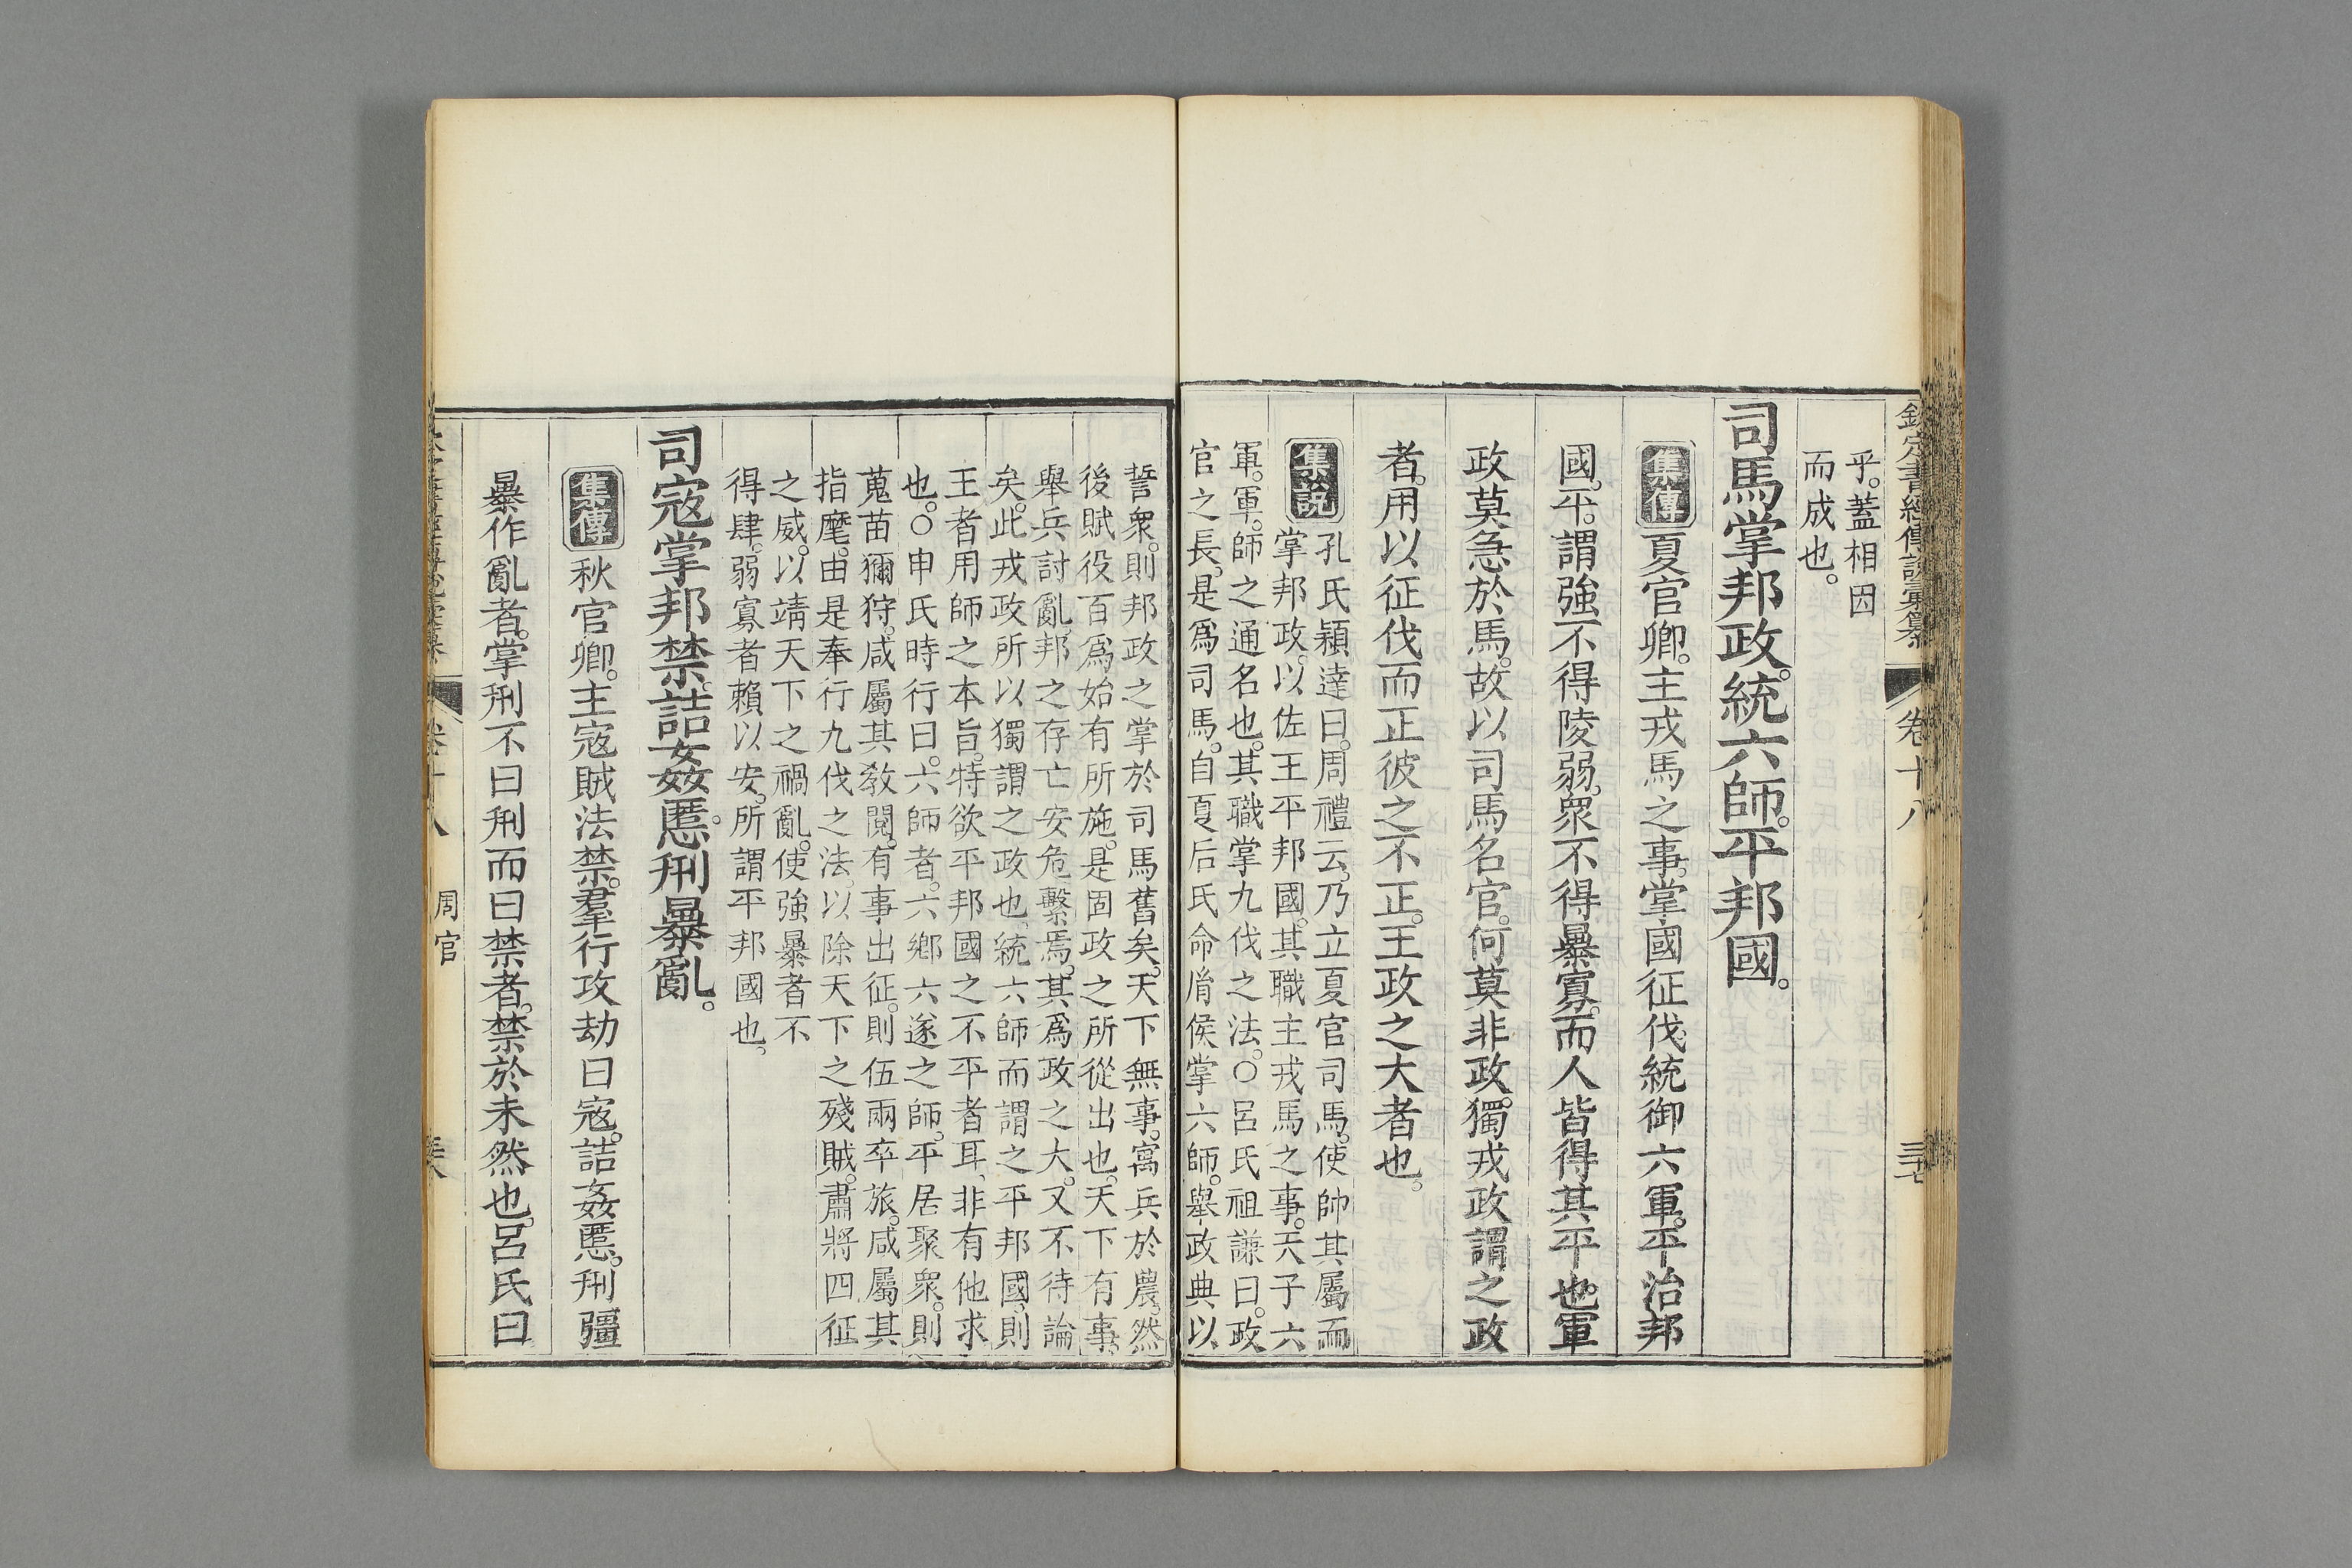 欽定書經傳說彙纂 卷十八 三十七
乎。蓋相因
而成也。
司馬掌邦政。統六師。平邦國。
集傳 夏官卿。主戎馬之事。掌國征伐。統御六軍。平治邦
國。平。謂強不得陵弱。衆不得暴寡。而人皆得其平也。軍
政莫急於馬。故以司馬名官。何莫非政。獨戎政謂之政
者。用以征伐而正彼之不正。王政之大者也。
集說 孔氏穎達曰。周禮云。乃立夏官司馬。使帥其屬而
掌邦政。以佐王平邦國。其職主戎馬之事。天子六
軍。軍。師之通名也。其職掌九伐之法。○呂氏祖謙曰。政
官之長。是爲司馬。自夏后氏命胤侯掌六師。舉政典以
誓衆。則邦政之掌於司馬舊矣。天下無事。寓兵於農。然
後賦役百爲始有所施。是固政之所從出也。天下有事。
舉兵討亂。邦之存亡安危繫焉。其爲政之大。又不待論
矣。此戎政所以獨謂之政也。統六師而謂之平邦國。則
王者用師之本旨。特欲平邦國之不平者耳。非有他求
也。○申氏時行曰。六師者。六鄉六遂之師。平居聚衆。則
蒐苗獮狩。咸屬其敎閱。有事出征。則伍兩卒旅。咸屬其
指麾。由是奉行九伐之法。以除天下之殘賊。肅將四征
之威。以靖天下之禍亂。使強暴者不
得肆。弱寡者賴以安。所謂平邦國也。
司寇掌邦禁。詰姦慝。刑暴亂。
集傳 秋官卿。主寇賊法禁。羣行攻劫曰寇。詰姦慝。刑彊
暴作亂者。掌刑不曰刑而曰禁者。禁於未然也。呂氏曰
卷十八 周官